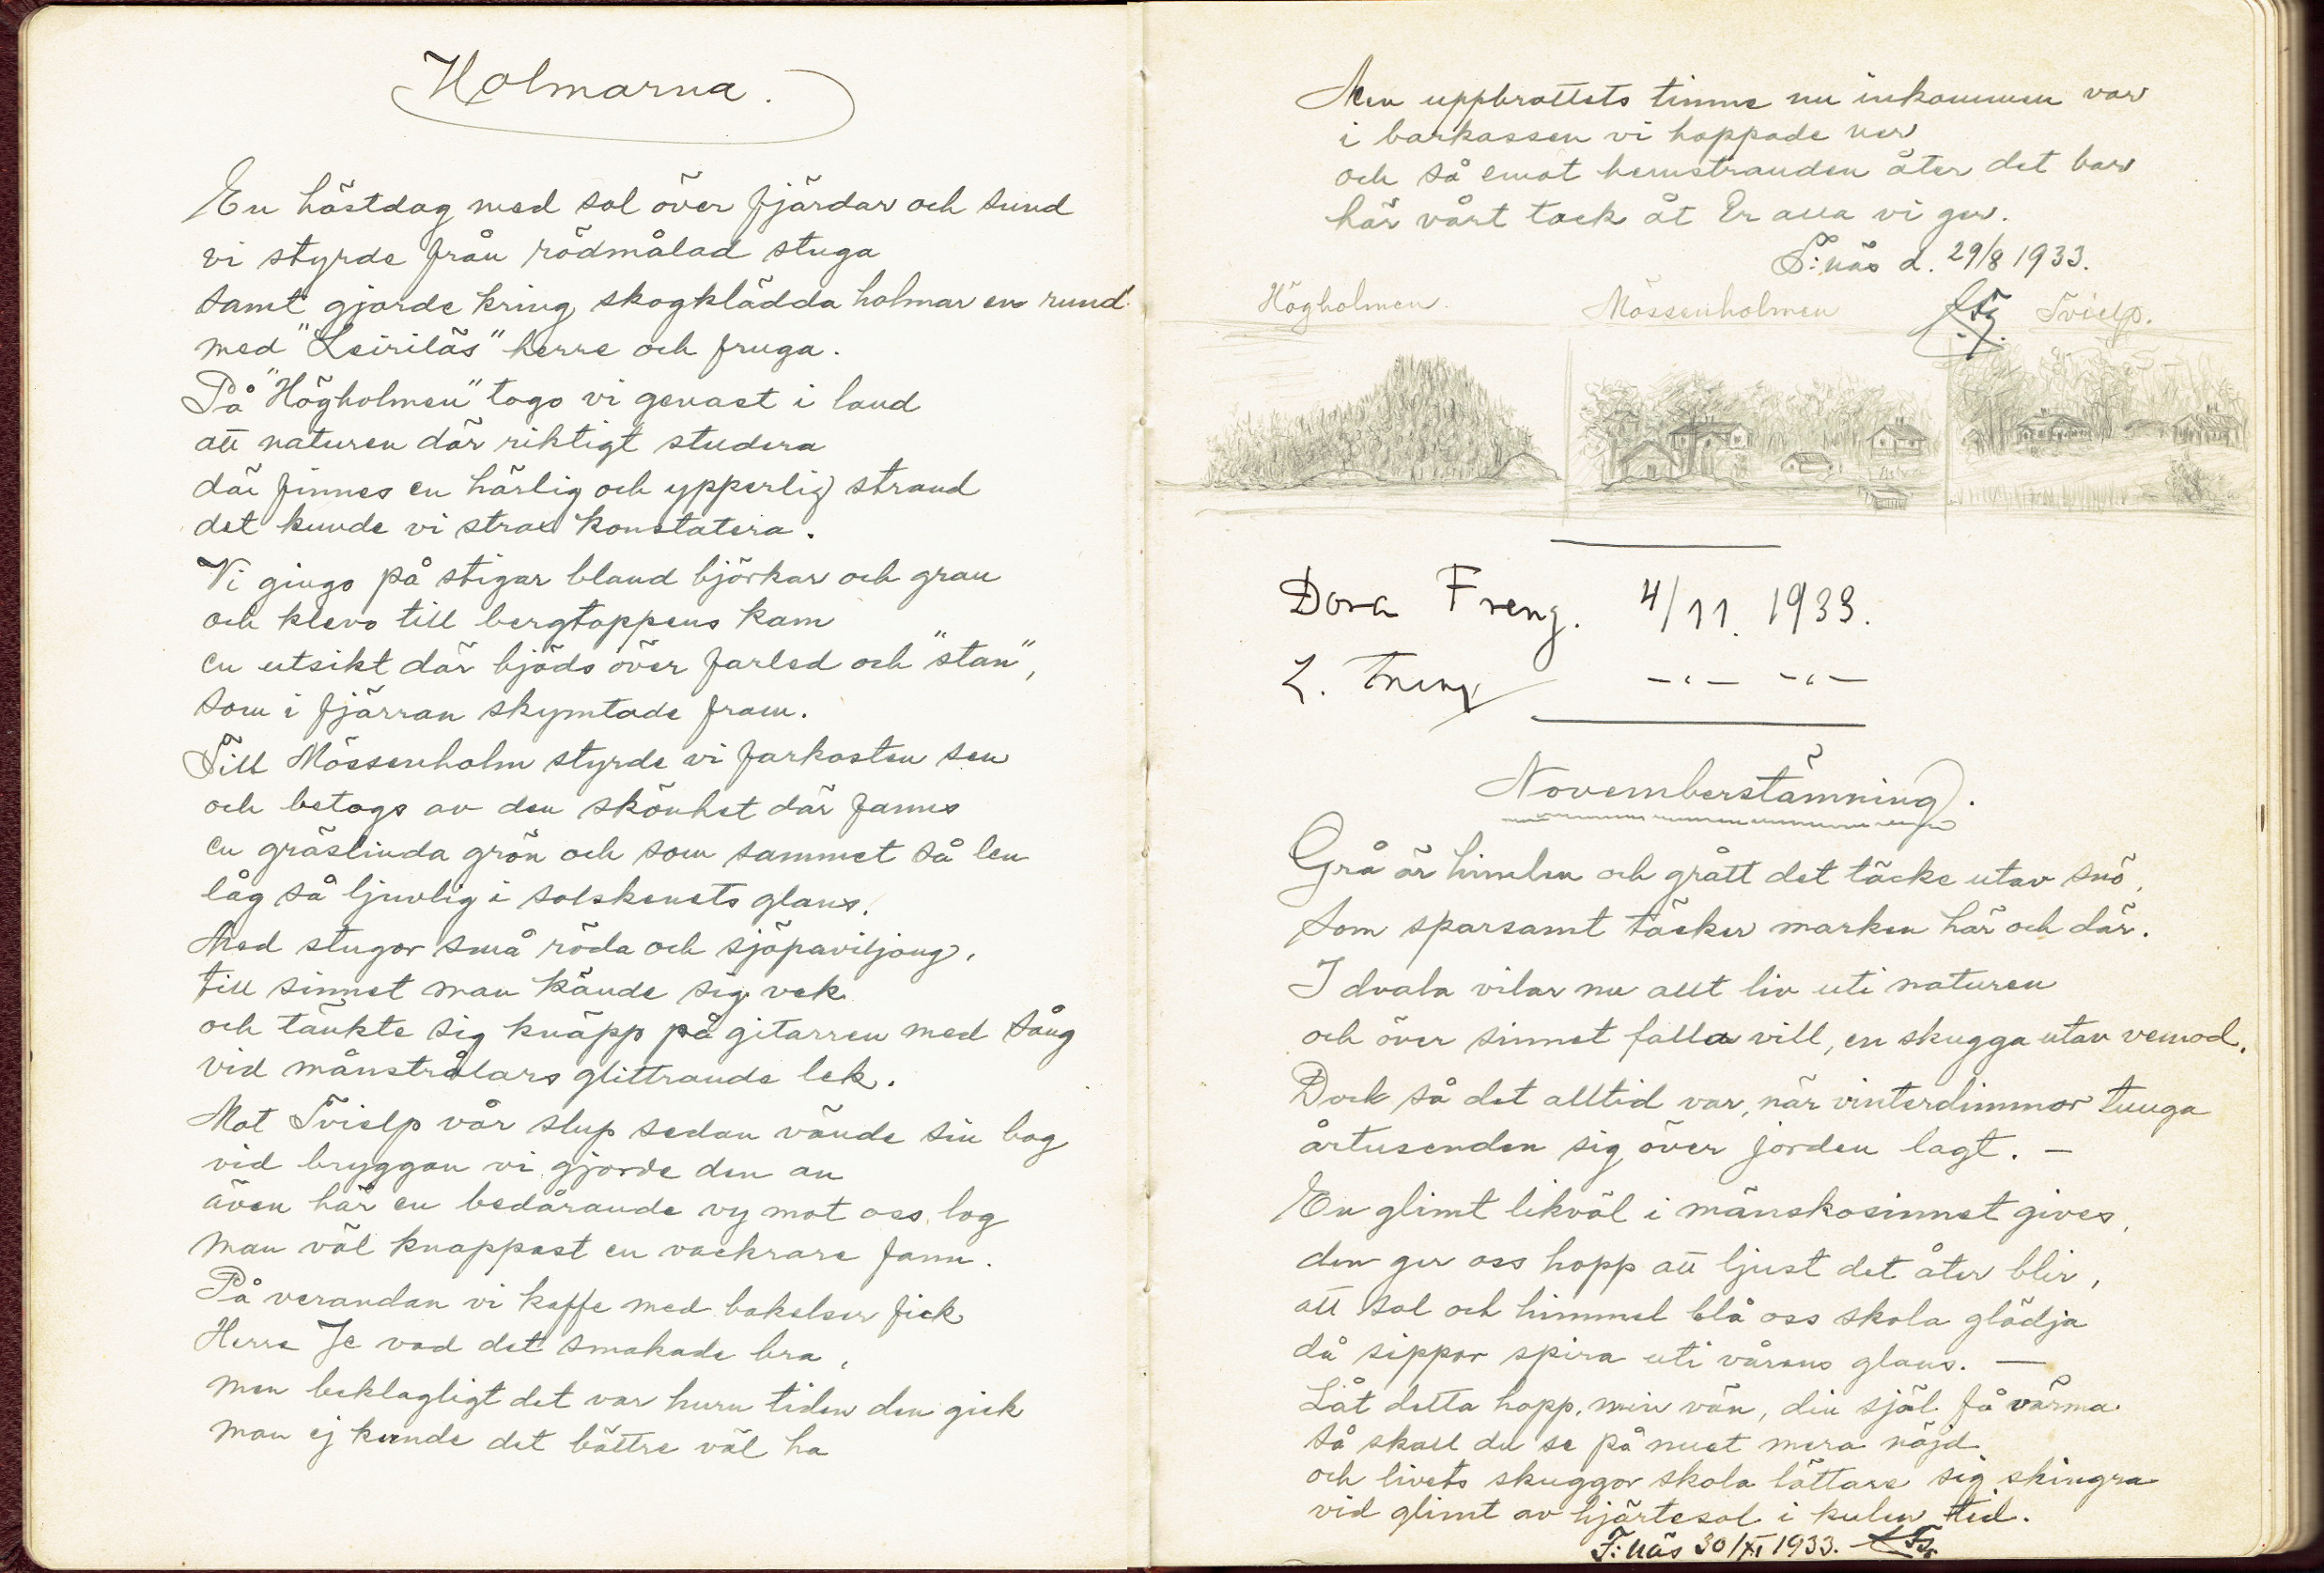 Holmarna.
En höstdag med sol över fjärdar och sund
vi styrde från rödmålad stuga
samt gjorde kring skogklädda holmar en rund
med "Leiriläs" herre och fruga.
På "Högholmen" togo vi genast i land
att naturen där riktigt studera
där finnes en härlig och ypperlig strand
det kunde vi strax konstatera.
Vi gingo på stigar bland björkar och gran
och klevo till bergtoppens kam
en utsikt där bjöds över farled och "stan",
som i fjärran skymtade fram.
Till Mössenholm styrde vi farkosten sen
och betogs av den skönhet där fanns
en gräslinda grön och som sammet så len
låg så ljuvlig i solskenets glans.
Med stugor små röda och sjöpaviljong,
till sinnet man kände sig vek
och tänkte sig knäpp på gitarren med sång
vid månstrålars glittrande lek.
Mot Tvielp vår slup sedan vände sin bog
vid bryggan vi gjorde den an
även här en bedårande vy mot oss log
man väl knappast en vackrare fann.
På verandan vi kaffe med bakelser fick
Herre Je vad det smakade bra,
men beklagligt det var huru tiden den gick
man ej kunde det bättre väl ha
Men uppbrottets timme nu inkommen var
i barkassen vi hoppade ner
och så emot hemstranden åter det bar
här vårt tack åt Er alla vi ger.
F:näs d. 29/8 1933.
Högholmen. Mössenholmen Tvielp.
Dora Freng. 4/11. 1933.
L. Freng -"- -"-
Novemberstämning.
Grå är himlen och grått det täcke utav snö,
som sparsamt täcker marken här och där.
I dvala vilar nu allt liv uti naturen
och över sinnet falla vill, en skugga utav vemod.
Dock så det alltid var, när vinterdimmor tunga
årtusenden sig över jorden lagt. –
En glimt likväl i mänskosinnet gives,
den ger oss hopp att ljust det åter blir,
att sol och himmel blå oss skola glädja
då sippor spira uti vårens glans. –
Låt detta hopp, min vän, din själ få värma
så skall du se på nuet mera nöjd
och livets skuggor skola lättare sig skingra
vid glimt av hjärtesol i kulen tid.
F:näs 30/XI 1933.